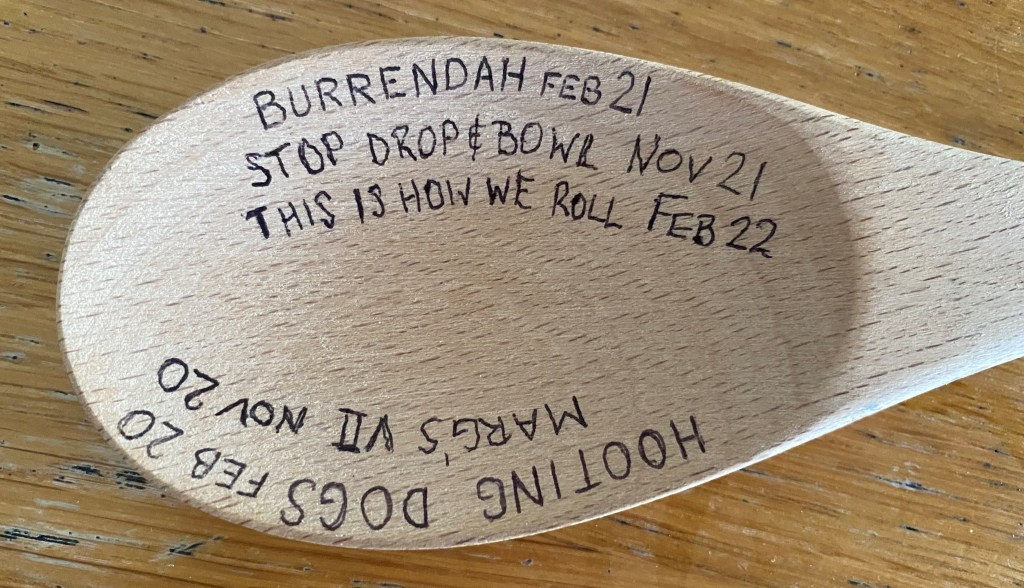 BURRENDAH FEB 21
STOP DROP & BOWL NOV 21
THIS IS HOW WE ROLL FEB 22
HOOTING DOGS FEB 20
MARG'S VII NOV 20